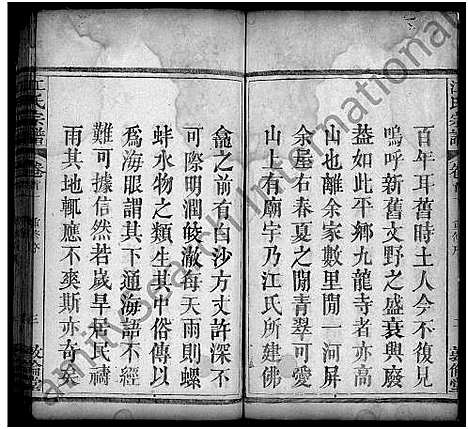 百年耳舊時土人今不復見
嗚呼新舊文野之盛衰興廢
葢如此平鄉九龍寺者亦高
山也離余家數里閒一河屏
余屋右春夏之閒青翠可愛
山上有廟宇乃江氏所建佛
龕之前有白沙方丈許深不
可際明潤皎澈每天雨則螺
蚌水物之類生其中俗傳以
為海眼謂其下通海語不經
難可據信然若歲旱居民禱
雨其地輒應不爽斯亦奇矣
江氏宗譜
卷首
三
敦倫堂
江氏宗譜
卷首
敦倫堂